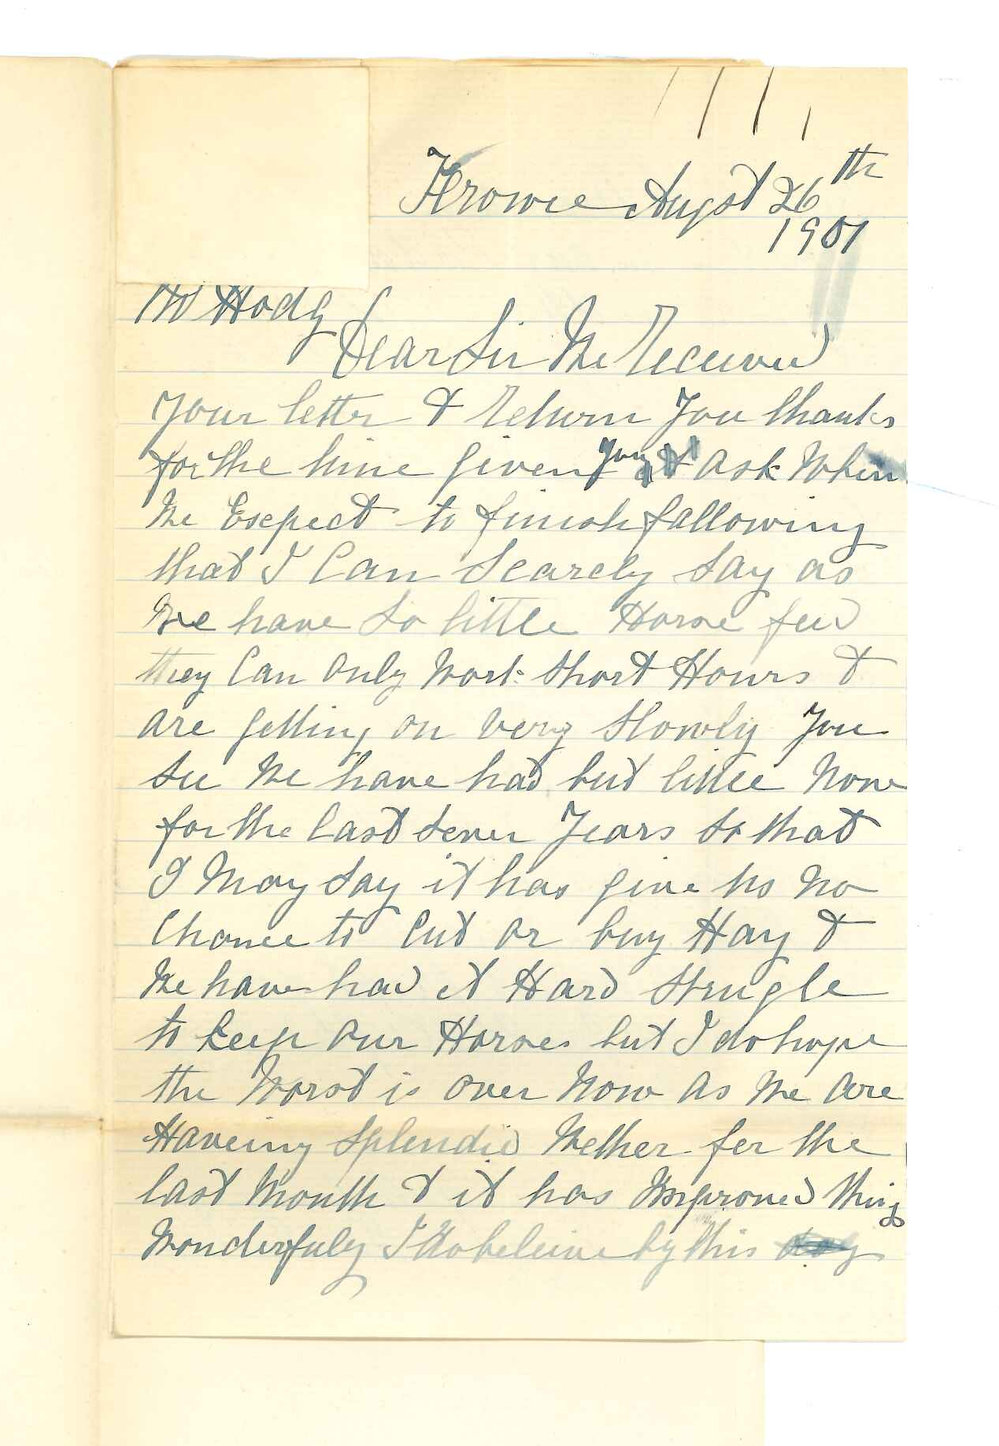 Krowie Augst 26th
1901
Mr Hodg
Dear Sir We Received
your letter & return you thanks
for the time given you & ask When
We Escpect to finish fallowing
that I Can Scarcely Say as
We have So little Horse feed
they Can Only Work Short Hours &
are getting on very Slowly You
See We have had but little None
for the last Seven Years So that
I May Say it has give us no
Chance to Cut or buy Hay &
We have had it Hard Strugle
to keep Our Horses but I do hope
the Worst is Over Now As We Are
Haveing Splendid Wether fer the
last Month & it has Improved thing
Wonderfuly I do beleive by this